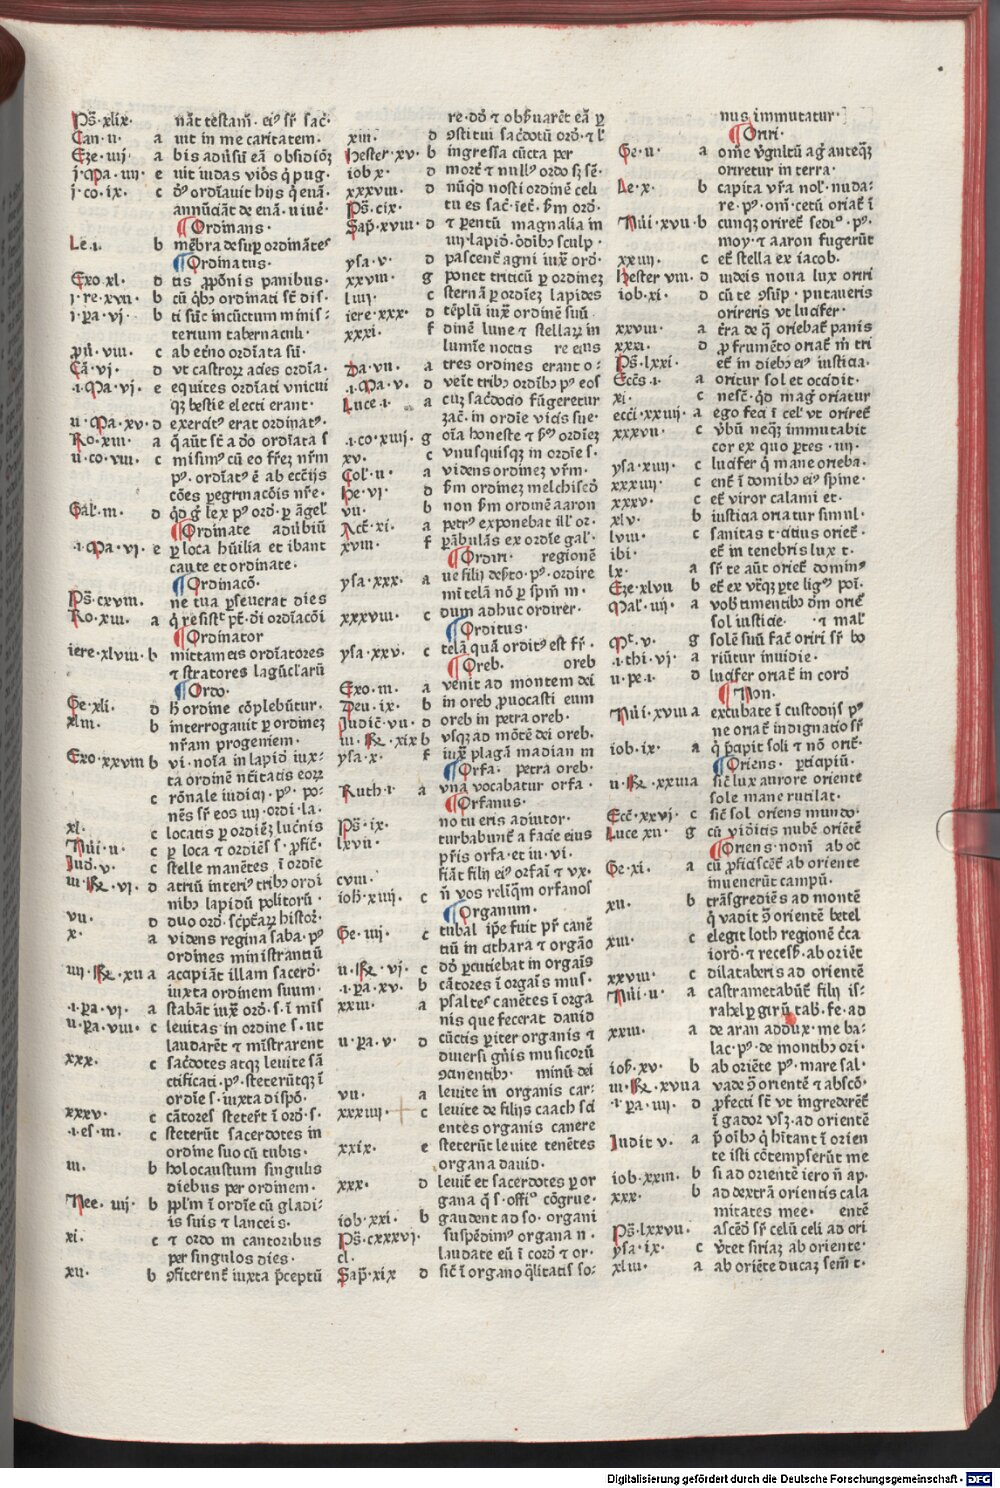 Ps̄·xlix· nāt testam̄· eiꝰ sr̄ sac̄·
Can·ii· a uit in me caritatem·
Eze·iiij· a bis adūsū eā obsidiōꝫ
j·Ma·iiij· e uit iudas viōs q̇ pug·
j·co·ix· c dn̄s ordīauit hijs q̇ euā·
annūciāt de euā·uiuē·
¶Ordinans·
Le·i· b mēbra desuꝑ ordināteſ
¶Ordinatus·
Exo·xl· d tis ꝓpōnis panibus·
j·re·xxii· b cū qͥbꝫ ordinati sūt dis·
j·pa·vj· b ti sūt incūctum minis-
terium tabernaculi·
pū·viii· c ab etīno ordīata sū·
Cā·vj· d vt castroꝝ acies ordīa·
·i·Ma·vj· e equites ordīati vnicui
qꝫ bestie electi erant·
ii·Ma·xv· d exercitꝰ erat ordinatꝰ·
Ro·xiii· a q̄ aūt sūt a dō ordīata s̄
ii·co·viii· c misimꝰ cū eo fr̄eꝫ nr̄m
pꝰ· ordīatꝰ ē ab eccīijs
cōes ꝑegrinacōis nr̄e·
Gal̄·iii· d qͥd gͥ lex pꝰ ord̄·ꝑ āgel̄
¶Ordinate adubiū
·i·Ma·vj· e ꝑ loca hūilia et ibant
caute et ordinate·
¶Ordinacō·
Ps̄·cxviii· ne tua ꝑseuerat dies
Ro·xiii· a q̇ resistͭ pt̄·di ordīacōi
¶Ordinator
iere·xlviii· b mittam eis ordīatores
⁊ stratores lagūcl̄arū
¶Ordo·
Ge·xli· d h̄ ordine cōplebūtur·
xliii· b interrogauit ꝑ ordineꝫ
nr̄am progeniem·
Exo·xxviii b vi·noīa in lapid̄ iux-
ta ordinē nc̄itatis eoꝝ
c rōnale iudicij·pꝰ·po-
nēs sr̄ eos iiij·ordi·la·
xl· c locatis ꝑ ordiēꝫ luc̄nis
Nūi·ii· c ꝑ loca ⁊ ordiēs s·ꝓfic̄·
Iud·v· c stelle manētes ī ordīe
iii·Re·vj· d atriū interiꝰ tribꝫ ordi
nibꝫ lapidū politorū·
vii· d duo ord̄·sc̄ptāꝝ histor̄·
x· a videns regina saba·pꝰ
ordines ministrantiū
iiij·Re·xii a acapiāt illam sacerd̄·
iuxta ordinem suum·
·i·pa·vj a stabāt iux̄ ord̄·s·ī mīs
ii·pa·viii· c leuitas in ordine s·ut
laudarēt ⁊ mīstrarent
xxx· c sac̄dotes atqꝫ leuite sā
ctificati·pꝰ·steterūtqꝫ ī
ordīe s·iuxta dispō·
xxxv· c cātores steter̄t ī ord̄·s·
·i·es·iii· c steterūt sacerdotes in
ordine suo cū tubis·
iii· b holocaustum singulis
diebus per ordinem·
Nee·iiij· b ppl̄m ī ordīe cū gladi-
is suis ⁊ lanceis·
xi· c ⁊ ordo in cantoribus
per singulos dies·
xii· b ꝯfiterent̄ iuxta p̄ceptū
re·dō ⁊ obẜuarēt eā ꝑ
xiii· d ꝯstitui sac̄dotū ord̄·⁊ l̄
Hester·xv· b ingressa cūcta per
iob x· d mort̄ ⁊ nullꝰ ordo sꝫ sē·
xxxviii· d nūqͥd nosti ordinē celi
Ps̄·cix· tu es sac̄·iet̄·ẜm ord̄·
Sap̄·xviii· d ⁊ ꝑentū magnalia in
iiij·lapid̄·ōdibꝫ sculp·
ysa·v· d pascent̄ agni iux̄ ord̄·
xxviii· g ponet triticū ꝑ ordineꝫ
liiij· c sternā ꝑ ordīeꝫ lapides
iere·xxx· d tēplū iux̄ ordinē suū·
xxxi· f dinē lune ⁊ stellaꝝ in
lumīe noctis re eius
Da·vii· a tres ordines erant o·
·i·Ma·v· d veīt tribꝫ ordībꝫ pꝰ eos
Luce·i· a cuꝫ sac̄docio fūgeretur
zac̄·in ordīe vicis sue·
·i·co·xiiij· g oīa honeste ⁊ ẜm ordīeꝫ
xv· c vnusquisqꝫ in ordīe s·
Col̄·ii· a videns ordineꝫ vr̄m·
He·vj· d ẜm ordineꝫ melchised̄
vii· b non ẜm ordinē aaron
Act̄·xi· a petrꝰ exponebat ill̄·or·
xviii· f ꝑābulās ex ordīe gal̄·
¶Ordiri· regionē
ysa·xxx· a ue filij desrto·pꝰ·ordire
mī telā nō ꝑ spm̄ m·
xxxviii· c dum adhuc ordirer·
¶Orditus·
ysa·xxv· c telā quā orditꝰ est sr̄·
¶Oreb· oreb
Exo·iii· a venit ad montem dei
Deu·ix· b in oreb ꝓuocasti eum
Iudic̄·vii· d oreb in petra oreb·
iii·Re·xix b vsqꝫ ad mōtē dei oreb·
ysa·x· f iux̄ plagā madian in
¶Orfa· petra oreb·
Ruth·i· a vna vocabatur orfa·
¶Orfanus·
Ps̄·ix· no tu eris adiutor·
lxvii· turbabunt̄ a facie eius
pr̄is orfa·et iu·vi·
cviii· fiāt filij eiꝰ orfaī ⁊ vx·
ioh̄·xiiij· c n̄ vos relīqm̄ orfanos
¶Organum·
Ge·iiij· c tubal ip̄e fuit pr̄ canē
tiū in cithara ⁊ orgāo
ii·Re·vj· c dd̄ ꝑcutiebat in orgaīs
·i·pa·xv· b cātores ī orgaīs mus·
xxiii· a psaltes canētes ī orga
nis que fecerat dauid
ii·pa·v· d cūctis ꝑiter organis ⁊
diuersi gn̄is musicorū
ꝯcinentibꝫ· minū dei
vii· a leuite in organis car-
xxxiiii· c leuite de filijs caach sci
entes organis canere
xxix· e steterūt leuite tenētes
organa dauid·
xxx· d leuit̄ et sacerdotes ꝑ or
gana q̄ s·offīo cōgrue·
iob·xxi· b gaudent ad so·organi
Ps̄·cxxxvj· suspēdimꝰ organa n·
cl· laudate eū ī cord̄ ⁊ or·
Sap̄·xix d sic̄ ī organo qͣlitatis so-
nus immutatur·
¶Oriri·
Ge·ii· a om̄e v̄gultū agͥ anteq̄ꝫ
oriretur in terra·
Le·x· b capita vr̄a nol̄·nuda-
re·pꝰ·om̄·cetū oriat̄ ī
Nūi·xvii·b cunqꝫ orirēt̄ sediō·pꝰ·
moy·⁊ aaron fugerūt
xxiiij· c et̄ stella ex iacob·
Hester viii· d iudeis noua lux oriri
iob·xi· d cū te ꝯsūp·putaueris
orireris vt lucifer·
xxviii· a t̄ra de q̄ oriebat̄ panis
xxxi· d ꝓ frumēto oriat̄ m̄ tri
Ps̄·lxxi· et̄ in diebꝫ eiꝰ iusticia·
Eccs̄·i· a oritur sol et occidit·
xi· c nesc̄·qͥd mag̓ oriatur
ecci·xxiiij· a ego feci ī cel̄ vt orirēt̄
xxxvii· c v̄bū neqꝫ immutabit
cor ex quo ꝑtes·iiij·
ysa·xiiij· c lucifer q̇ mane orieba·
xxxiiij· c ent̄ ī domibꝫ eiꝰ spine·
xxxv· c et̄ viror calami et·
xlv· b iusticia oriatur simul·
lviii· c sanitas t·citius oriet̄·
ibi· et̄ in tenebris lux t·
lx· a sr̄ te aūt oriet̄ dominꝰ
Eze·xlvii b et̄ ex vtͣqꝫ ꝑte ligꝰ poī·
Mal̄·iiij· a vob̄ timentibꝫ dm̄ oriet̄
sol iusticie· ⁊ mal̄
Mt̄·v· g solē suū fac̄ oriri sr̄ bo
·i·thi·vj· a riūtur inuidie·
ii·pe·i· d lucifer oriat̄ in cord̄
¶Non·
Nūi·xviii a excubate ī custodijs pꝰ
ne oriat̄ indignatio sr̄
iob·ix· a q̇ p̄cipit soli ⁊ nō orit̄·
¶Oriens· ꝑticipiū·
ii·Re·xxiii a sic̄ lux aurore oriente
sole mane rutilat·
Ecc̄·xxvj· c sic̄ sol oriens mundo·
Luce·xii· g cū viditis nubē oriētē
¶Oriens·nom̄ ab oc
Ge·xi· a cū ꝓficiscēt̄ ab oriente
inuenerūt campū·
xii· b trāsgrediēs ad montē
q̇ vadit ꝯ̄ orientē betel
xiii· c elegit loth regionē c̄ca
iord̄·⁊ recess̄·ab oriēt
xxviii· c dilataberis ad orientē
Nūi·ii· a castrametabūt̄ filij is-
rahel ꝑ girū tab̄·fe·ad
xxiii· a de aran addux·me ba-
lac·pꝰ·de montibꝫ ori·
ioh̄·xv· b ab oriēte pꝰ·mare sal·
iii·Re·xvii a vade ꝯ̄ orientē ⁊ abscō·
·i·pa·iiij· d ꝓfecti sūt vt ingrederēt̄
ī gador vsꝫ·ad orientē
Iudit v· a p̄ oībꝫ q̇ hītant ī orien
te isti cōtempserūt me
iob·xxiii· b si ad orientē iero n̄ ap·
xxx· b ad dextrā orientis cala
mitates mee· entē
Ps̄·lxxvii· ascēd̄ sr̄ celū celi ad ori
ysa·ix· c v̄tet siriaꝫ ab oriente·
xliii· a ab oriēte ducaꝫ sem̄ t·
Digitalisierung gefördert durch die Deutsche Forschungsgemeinschaft - DFG